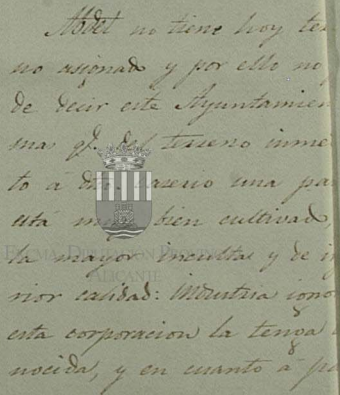 Abdet no tiene hoy ter
no asignado y por ello no p
de decir este Ayuntamien
mas qe. del terreno inme
to á dho. caserio una pa
está mui bien cultivad
la mayor incultas y de in
rior calidad: Industria igno
esta corporacion la tenga
nocida, y en cuanto á po
EXCMA. DIPUTACION PROVINCIAL
ALICANTE